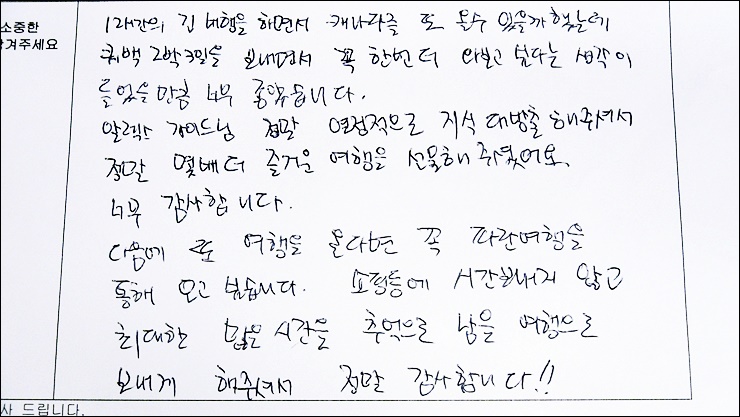 소중한
남겨주세요
12시간의 긴 비행을 하면서 캐나다를 또 올수 있을까 했는데
퀘백 2박3일을 보내면서 꼭 한번 더 와보고 싶다는 생각이
들었을만큼 너무 좋았습니다.
알렉스 가이드님 정말 열정적으로 지식 대방출 해주셔서
정말 몇배 더 즐거운 여행을 선물해 주셨어요.
너무 감사합니다.
다음에 또 여행을 온다면 꼭 파란여행을
통해 오고 싶습니다. 쇼핑등에 시간보내지 않고
최대한 많은 시간을 추억으로 남을 여행으로
보내게 해줘서 정말 감사합니다!!
사 드립니다.